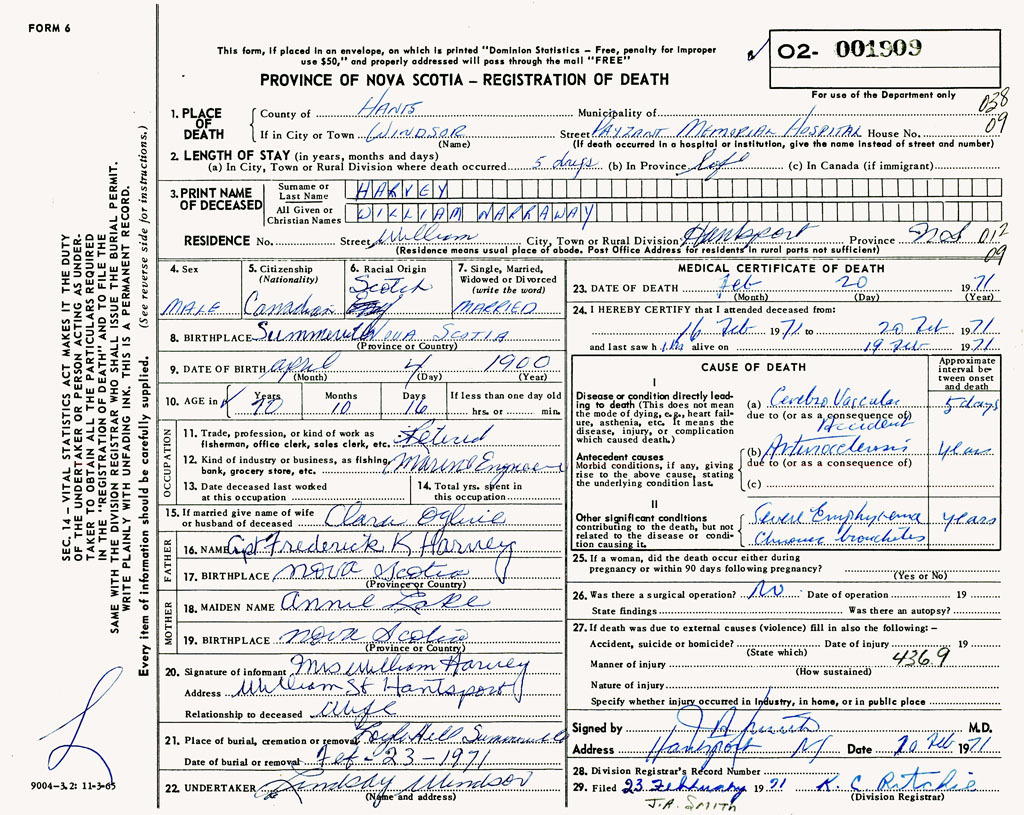 FORM 6
This form, if placed in an envelope, on which is printed "Dominion Statistics – Free, penalty for improper
use $50," and properly addressed will pass through the mail "FREE"
PROVINCE OF NOVA SCOTIA – REGISTRATION OF DEATH
02- 001909
For use of the Department only
038
09
1. PLACE OF DEATH
County of HANTS Municipality of
If in City or Town WINDSOR Street PAYZANT MEMORIAL HOSPITAL House No.
(Name) (If death occurred in a hospital or institution, give the name instead of street and number)
2. LENGTH OF STAY (in years, months and days)
(a) In City, Town or Rural Division where death occurred 5 days (b) In Province Life (c) In Canada (if immigrant)
3. PRINT NAME OF DECEASED
Surname or Last Name HARVEY
All Given or Christian Names WILLIAM NARRAWAY
RESIDENCE No. Street William City, Town or Rural Division Hantsport Province N.S. 012
09
(Residence means usual place of abode. Post Office Address for residents in rural parts not sufficient)
4. Sex
MALE
5. Citizenship
(Nationality)
Canadian
6. Racial Origin
Scotch
7. Single, Married,
Widowed or Divorced
(write the word)
MARRIED
8. BIRTHPLACE Summerville NOVA SCOTIA
(Province or Country)
9. DATE OF BIRTH April 4 1900
(Month) (Day) (Year)
10. AGE in Years Months Days If less than one day old
70 10 16 hrs. or min.
OCCUPATION
11. Trade, profession, or kind of work as
fisherman, office clerk, sales clerk, etc. Retired
12. Kind of industry or business, as fishing,
bank, grocery store, etc. Marine Engineer
13. Date deceased last worked
at this occupation
14. Total yrs. spent in
this occupation
15. If married give name of wife
or husband of deceased Clara Ogilvie
FATHER
16. NAME Capt Frederick K Harvey
17. BIRTHPLACE Nova Scotia
(Province or Country)
MOTHER
18. MAIDEN NAME Annie Lake
19. BIRTHPLACE Nova Scotia
(Province or Country)
20. Signature of informant Mrs William Harvey
Address William St Hantsport
Relationship to deceased Wife
21. Place of burial, cremation or removal Foyle Hill Summerville
Date of burial or removal Feb-23-1971
22. UNDERTAKER Lindsay Windsor
(Name and address)
MEDICAL CERTIFICATE OF DEATH
23. DATE OF DEATH Feb 20 1971
(Month) (Day) (Year)
24. I HEREBY CERTIFY that I attended deceased from:
16 Feb 1971 to 20 Feb 1971
and last saw him alive on 19 Feb 1971
CAUSE OF DEATH
Approximate
interval be-
tween onset
and death
I
Disease or condition directly lead-
ing to death (This does not mean
the mode of dying, e.g., heart fail-
ure, asthenia, etc. It means the
disease, injury, or complication
which caused death.)
(a) Cerebro Vascular 5 days
due to (or as a consequence of)
Accident
Antecedent causes
Morbid conditions, if any, giving
rise to the above cause, stating
the underlying condition last.
(b) Arteriosclerosis years
due to (or as a consequence of)
(c)
II
Other significant conditions
contributing to the death, but not
related to the disease or condi-
tion causing it.
Severe Emphysema years
Chronic bronchitis
25. If a woman, did the death occur either during
pregnancy or within 90 days following pregnancy?
(Yes or No)
26. Was there a surgical operation? No Date of operation 19
State findings Was there an autopsy?
27. If death was due to external causes (violence) fill in also the following: –
Accident, suicide or homicide? Date of injury 19
(State which) 436.9
Manner of injury
(How sustained)
Nature of injury
Specify whether injury occurred in industry, in home, or in public place
Signed by J A Smith M.D.
Address Hantsport NS Date 20 Feb 1971
28. Division Registrar's Record Number
29. Filed 23 February 1971 K. C Ritchie
J.A. SMITH (Division Registrar)
SEC. 14 – VITAL STATISTICS ACT MAKES IT THE DUTY
OF THE UNDERTAKER OR PERSON ACTING AS UNDER-
TAKER TO OBTAIN ALL THE PARTICULARS REQUIRED
IN THE "REGISTRATION OF DEATH" AND TO FILE THE
SAME WITH THE DIVISION REGISTRAR WHO SHALL ISSUE THE BURIAL PERMIT.
WRITE PLAINLY WITH UNFADING INK. THIS IS A PERMANENT RECORD.
Every item of information should be carefully supplied. (See reverse side for instructions.)
9004-3.2: 11-3-65